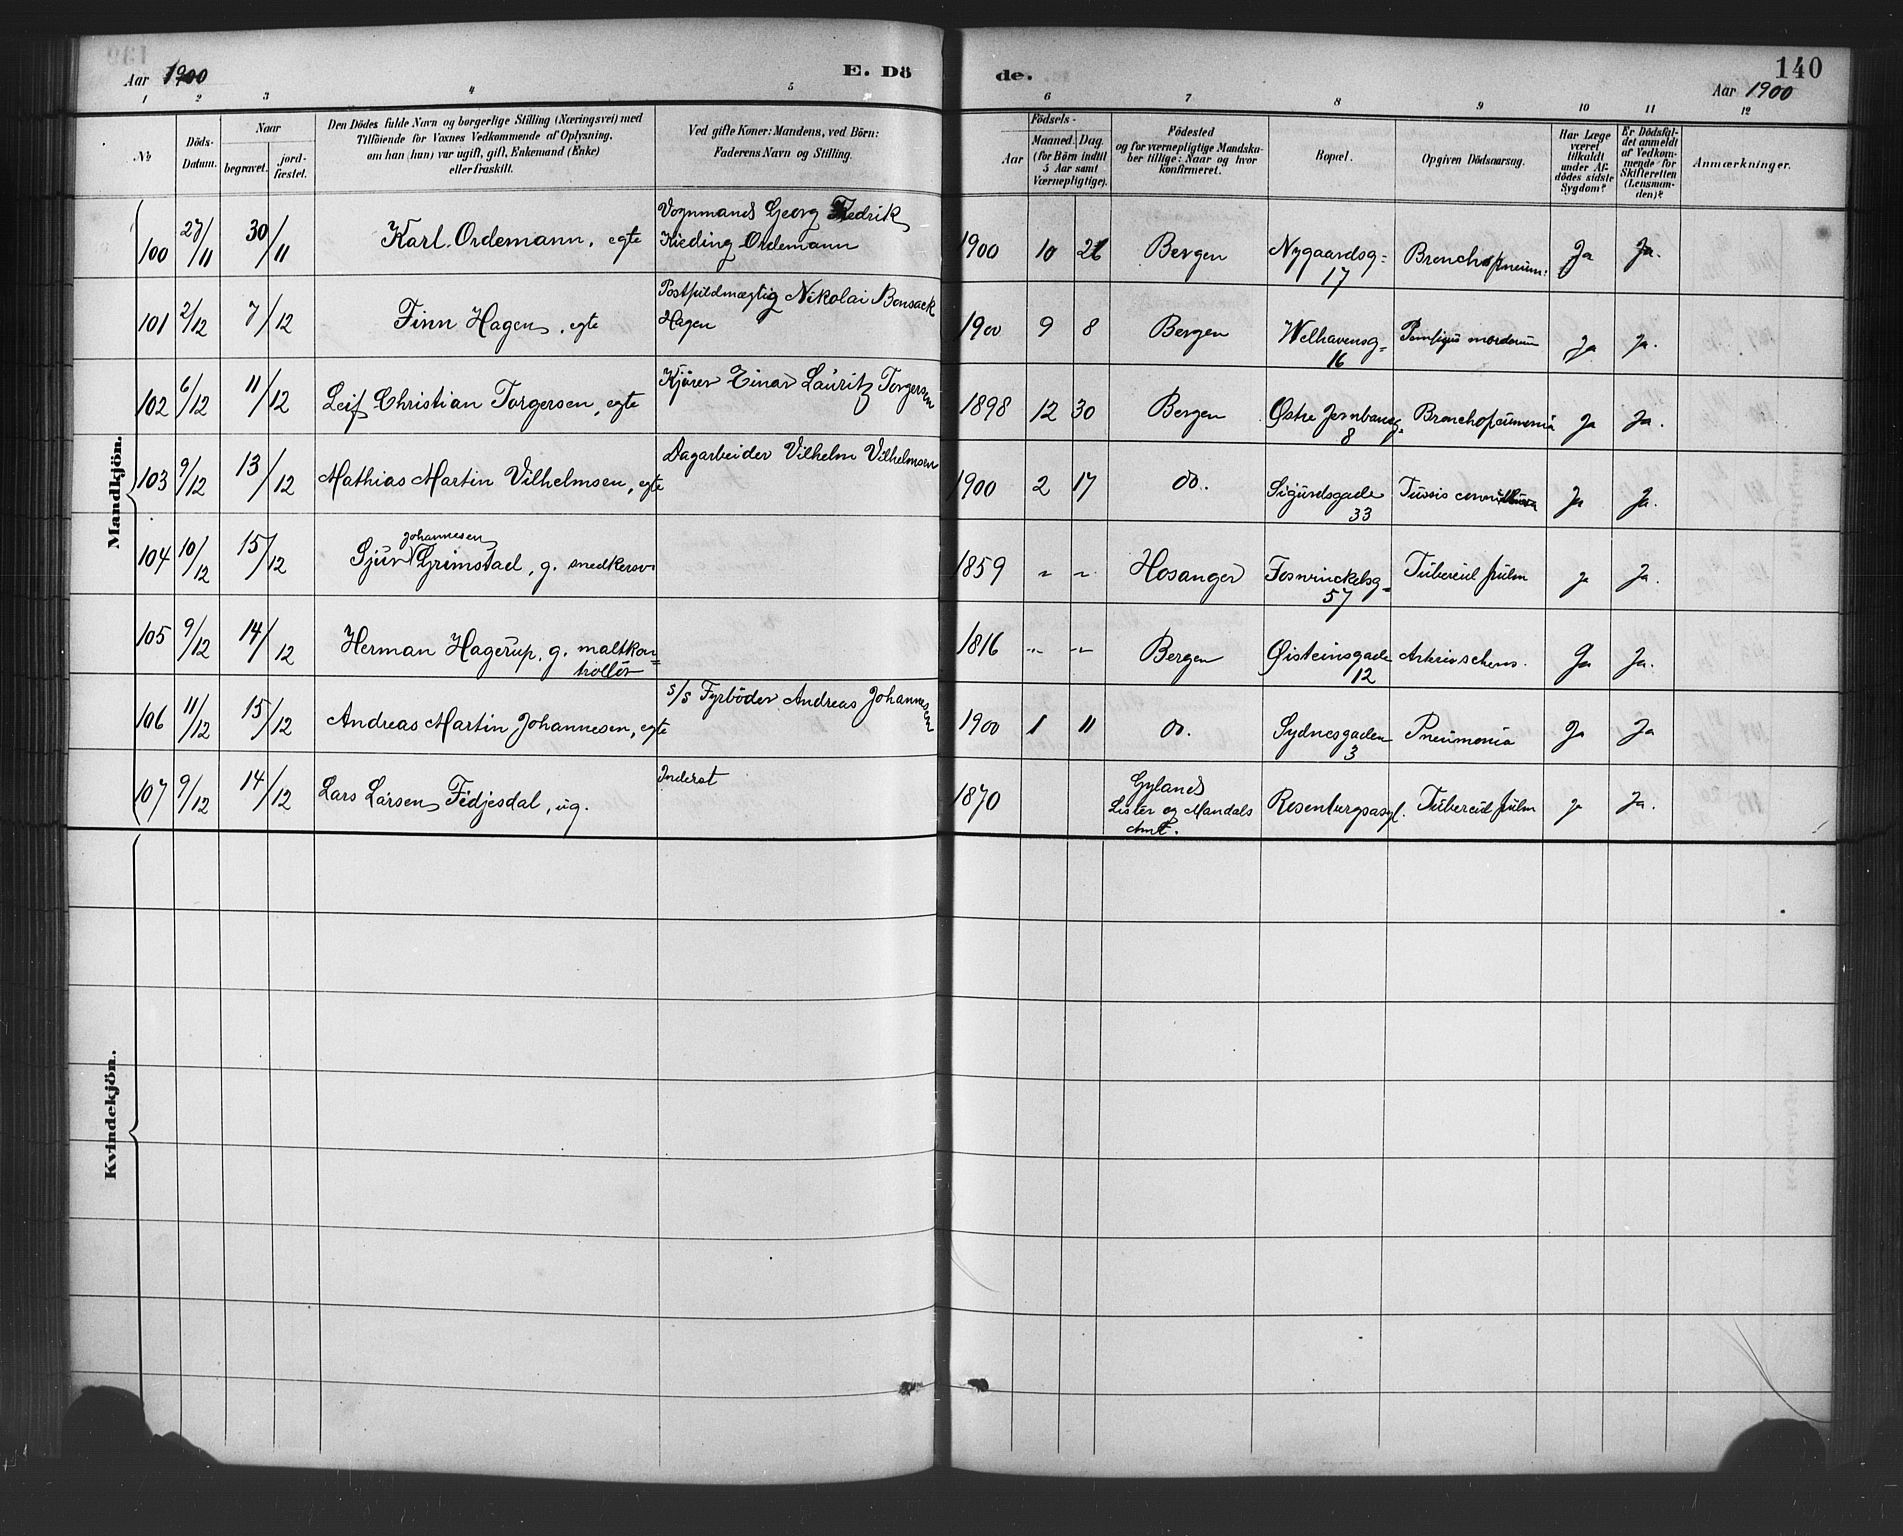 140
Aar 1900 E. Dö de. Aar 1900
1 2 3 4 5 6 7 8 9 10 11 12
№ Döds-Datum. Naar begravet. jord-fæstet. Den Dödes fulde Navn og borgerlige Stilling (Næringsvei) med Tilföiende för Voxnes Vedkommende af Oplysning, om han (hun) var ugift, gift, Enkemand (Enke) eller fraskilt. Ved gifte Koner: Mandens, ved Börn: Faderens Navn og Stilling. Födsels- Aar Maaned. Dag. (for Börn indtil 5 Aar samt Værnepligtige). Födested og for værnepligtige Mandska-ber tillige: Naar og hvor konfirmeret. Bopæl. Opgiven Dödsaarsag. Har Læge været tilkaldt under Af-dödes sidste Sygdom? Er Dödsfal-det anmeldt af Vedkom-mende for Skifteretten (Lensman-den)? Anmærkninger.
Mandkjön.
100 27/11 30/11 Karl Ordemann, egte Vognmand Georg Fredrik Kieding Ordemann 1900 10 26 Bergen Nygaardsg= 17 Bronchopneum: Ja Ja.
101 2/12 7/12 Finn Hagen, egte Postfuldmægtig Nikolai Bonsack Hagen 1900 9 8 Bergen Welhavensg= 16 Ja Ja.
102 6/12 11/12 Leif Christian Torgersen, egte Kjører Einar Lauritz Torgersen 1898 12 30 Bergen Østre Jernbaneg. 8 Bronchopneumonia Ja Ja.
103 9/12 13/12 Mathias Martin Vilhelmsen, egte Dagarbeider Vilhelm Vilhelmsen 1900 2 17 do. Sigurdsgade 33 Tussis Ja Ja.
104 10/12 15/12 Sjur Johannesen Grimstad, g. snedkersv. 1859 " " Hosanger Fosswinckelsg= 57 Tubercul pulm Ja Ja.
105 9/12 14/12 Herman Hagerup, g. maltkon=trollør 1816 " " Bergen Øisteinsgade 12 Ja Ja.
106 11/12 15/12 Andreas Martin Johannesen, egte s/s Fyrbøder Andreas Johannesen 1900 1 11 do. Sydnesgaden 3 Pneumonia Ja Ja
107 9/12 14/12 Lars Larsen Fidjesdal, ug. Inderst 1870 Gyland Lister og Mandals Amt. Rosenbergsasyl. Tubercul pulm Ja Ja.
Kvindekjön.